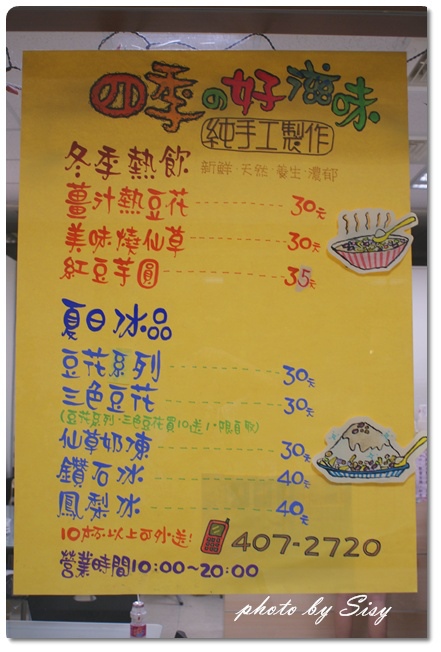 四季の好滋味
純手工製作
冬季熱飲 新鮮·天然·養生·濃郁
薑汁熱豆花 30元
美味燒仙草 30元
紅豆芋圓 35元
夏日冰品
豆花系列 30元
三色豆花 30元
(豆花系列·三色豆花買10送1·限自取)
仙草奶凍 30元
鑽石冰 40元
鳳梨冰 40元
10杯以上可外送! 407-2720
營業時間10:00~20:00
photo by Sisy